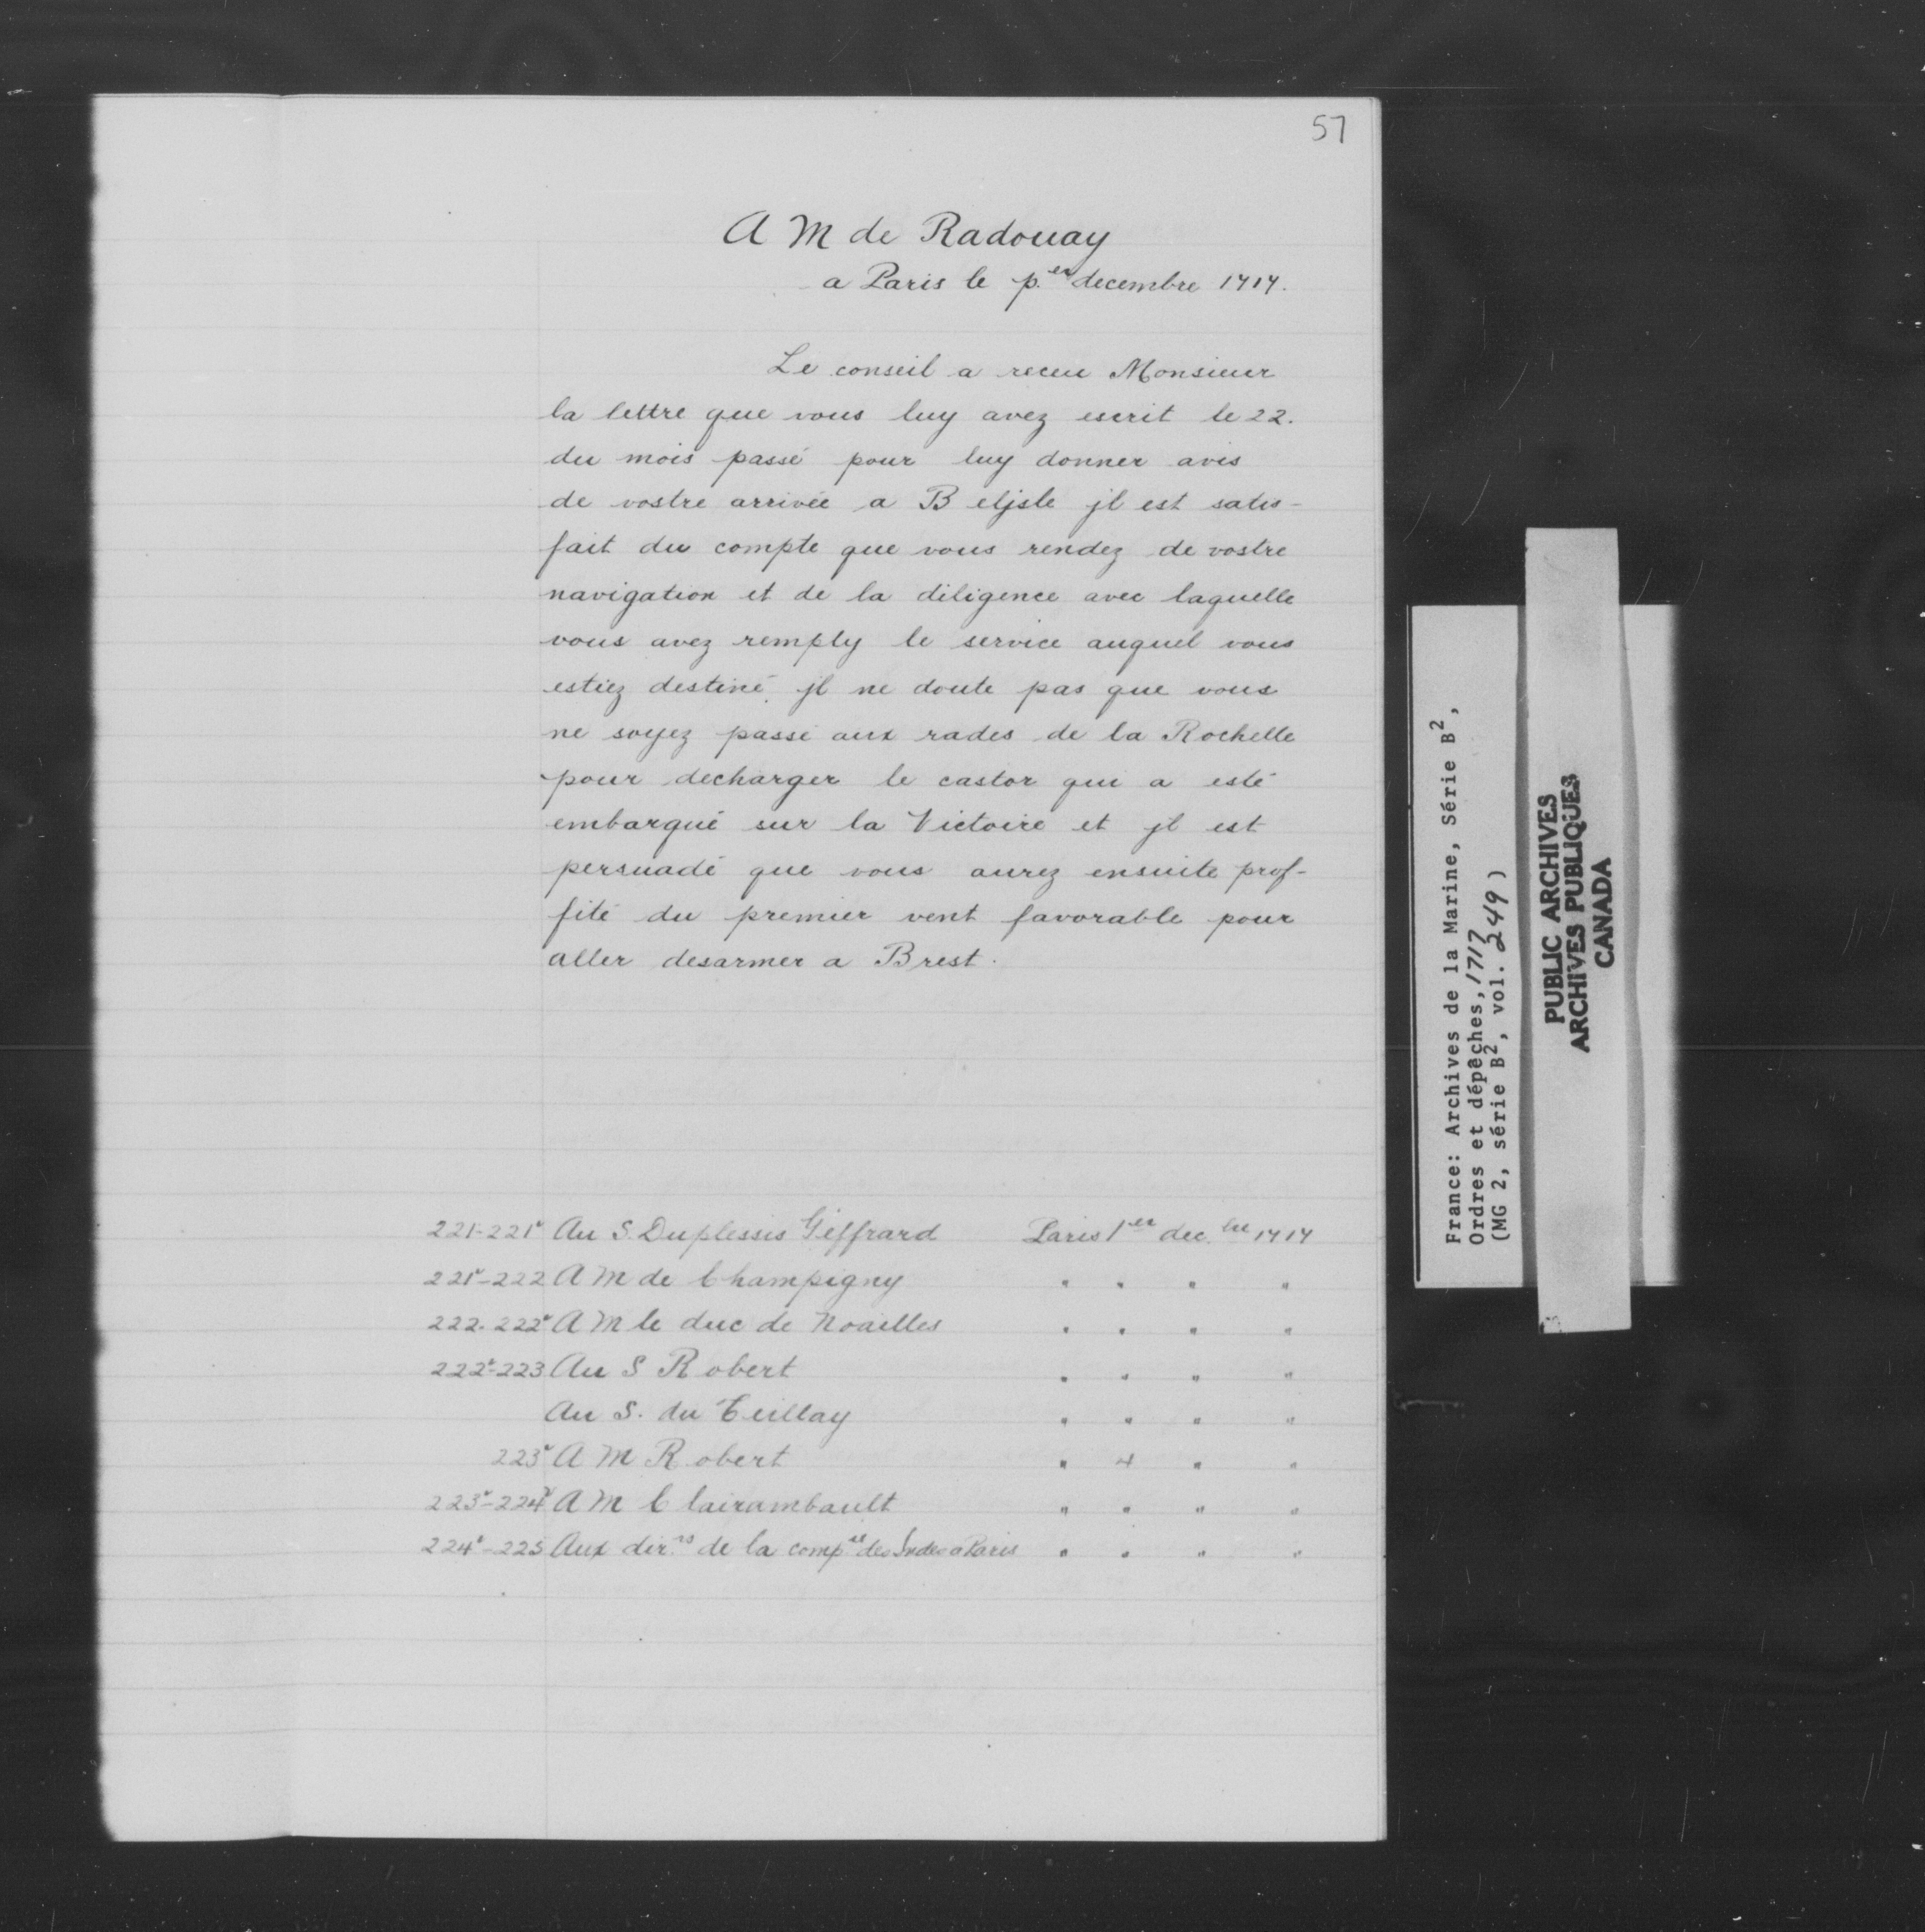 57
A M de Radouay
a Paris le p.er decembre 1717.
Le conseil a receu Monsieur
la lettre que vous luy avez escrit le 22.
du mois passé pour luy donner avis
de vostre arrivée a Beljsle jl est satis-
fait du compte que vous rendez de vostre
navigation et de la diligence avec laquelle
vous avez remply le service auquel vous
estiez destiné. jl ne doute pas que vous
ne soyez passé aux rades de la Rochelle
pour decharger le castor qui a esté
embarqué sur la Victoire et jl est
persuadé que vous aurez ensuite prof-
fité du premier vent favorable pour
aller desarmer a Brest.
221-221v Au S. Duplessis Geffrard Paris 1er dec.bre 1717
221v-222 A M de Champigny " " " "
222-222v A M le duc de Noailles " " " "
222v-223 Au S Robert " " " "
Au S. du Teillay " " " "
223v A M Robert " 4 " "
223v-224v A M Clairambault " " " "
224v-225 Aux dir.rs de la comp.ie des Indes a Paris " " " "
France: Archives de la Marine, Série B2,
Ordres et dépêches, 1717
(MG 2, série B2, vol. 249)
PUBLIC ARCHIVES
ARCHIVES PUBLIQUES
CANADA